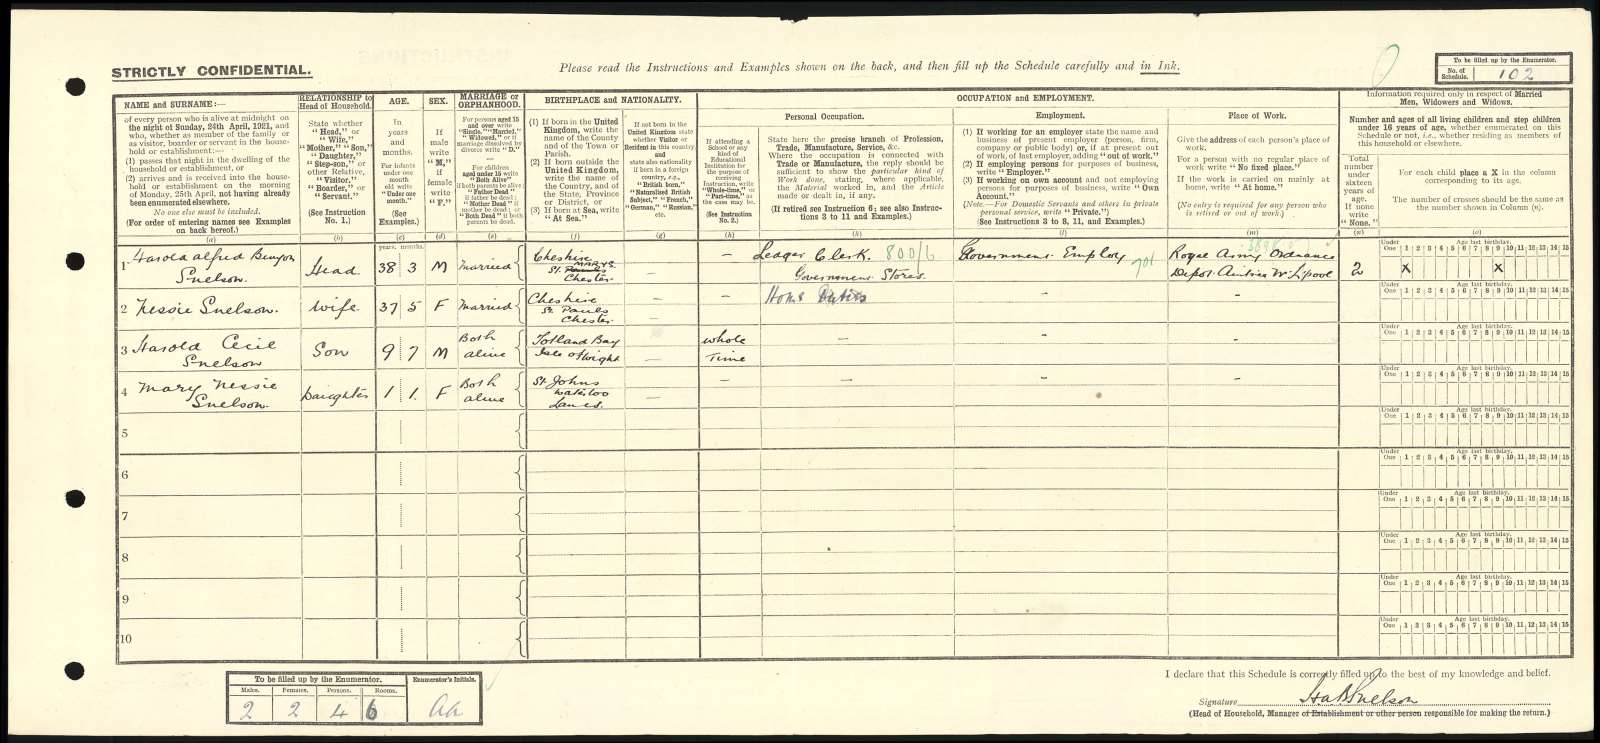 STRICTLY CONFIDENTIAL.
Please read the Instructions and Examples shown on the back, and then fill up the Schedule carefully and in Ink.
To be filled up by the Enumerator.
No. of Schedule. 102
NAME and SURNAME:—
of every person who is alive at midnight on
the night of Sunday, 24th April, 1921, and
who, whether as member of the family or
as visitor, boarder or servant in the house-
hold or establishment:—
(1) passes that night in the dwelling of the
household or establishment, or
(2) arrives and is received into the house-
hold or establishment on the morning
of Monday, 25th April, not having already
been enumerated elsewhere.
No one else must be included.
(For order of entering names see Examples
on back hereof.)
(a)
RELATIONSHIP to
Head of Household.
State whether
"Head," or
"Wife,"
"Mother," "Son,"
"Daughter,"
"Step-son," or
other Relative,
"Visitor,"
"Boarder," or
"Servant."
(See Instruction
No. 1.)
(b)
AGE.
In
years
and
months.
For infants
under one
month
old write
"Under one
month."
(See
Examples.)
(c)
years. months.
SEX.
If
male
write
"M,"
if
female
write
"F."
(d)
MARRIAGE or
ORPHANHOOD.
For persons aged 15
and over write
"Single," "Married,"
"Widowed," or if
marriage dissolved by
divorce write "D."
—
For children
aged under 15 write
"Both Alive"
if both parents be alive;
"Father Dead"
if father be dead;
"Mother Dead" if
mother be dead; or
"Both Dead" if both
parents be dead.
(e)
BIRTHPLACE and NATIONALITY.
(1) If born in the United
Kingdom, write the
name of the County
and of the Town or
Parish.
(2) If born outside the
United Kingdom,
write the name of
the Country, and of
the State, Province
or District, or
(3) If born at Sea, write
"At Sea."
(f)
If not born in the
United Kingdom state
whether Visitor or
Resident in this country,
and
state also nationality
if born in a foreign
country, e.g.,
"British born,"
"Naturalised British
Subject," "French,"
"German," "Russian,"
etc.
(g)
OCCUPATION and EMPLOYMENT.
If attending a
School or any
kind of
Educational
Institution for
the purpose of
receiving
Instruction, write
"Whole-time," or
"Part-time," as
the case may be.
(See Instruction
No. 2.)
(h)
Personal Occupation.
State here the precise branch of Profession,
Trade, Manufacture, Service, &c.
Where the occupation is connected with
Trade or Manufacture, the reply should be
sufficient to show the particular kind of
Work done, stating, where applicable,
the Material worked in, and the Article
made or dealt in, if any.
(If retired see Instruction 5; see also Instruc-
tions 3 to 11 and Examples.)
(k)
Employment.
(1) If working for an employer state the name and
business of present employer (person, firm,
company or public body) or, if at present out
of work, of last employer, adding "out of work."
(2) If employing persons for purposes of business,
write "Employer."
(3) If working on own account and not employing
persons for purposes of business, write "Own
Account."
(Note.—For Domestic Servants and others in private
personal service, write "Private.")
(See Instructions 3 to 8, 11, and Examples.)
(l)
Place of Work.
Give the address of each person's place of
work.
For a person with no regular place of
work write "No fixed place."
If the work is carried on mainly at
home, write "At home."
(No entry is required for any person who
is retired or out of work.)
(m)
Information required only in respect of Married
Men, Widowers and Widows.
Number and ages of all living children and step children
under 16 years of age, whether enumerated on this
Schedule or not, i.e., whether residing as members of
this household or elsewhere.
Total
number
under
sixteen
years of
age.
If none
write
"None."
(n)
For each child place a X in the column
corresponding to its age.
The number of crosses should be the same as
the number shown in Column (n).
(o)
Under One Age last birthday. 1 2 3 4 5 6 7 8 9 10 11 12 13 14 15
1 Harold Alfred Benyon Snelson. Head 38 3 M Married Cheshire St. Pauls MARYS Chester — Ledger Clerk. 800/6 Government Stores. Government Employ 701 Royal Army Ordnance Depot Aintree Nr L'pool 2 X X
2 Nessie Snelson. Wife. 37 5 F Married Cheshire St. Pauls Chester — — Home Duties — —
3 Harold Cecil Snelson Son 9 7 M Both alive Totland Bay Isle of Wight — Whole Time — — —
4 Mary Nessie Snelson. Daughter 1 1 F Both alive St. Johns Waterloo Lancs. — — — — —
5
6
7
8
9
10
To be filled up by the Enumerator.
Males. Females. Persons. Rooms.
2 2 4 6
Enumerator's Initials.
I declare that this Schedule is correctly filled up to the best of my knowledge and belief.
Signature HAB Snelson
(Head of Household, Manager of Establishment or other person responsible for making the return.)